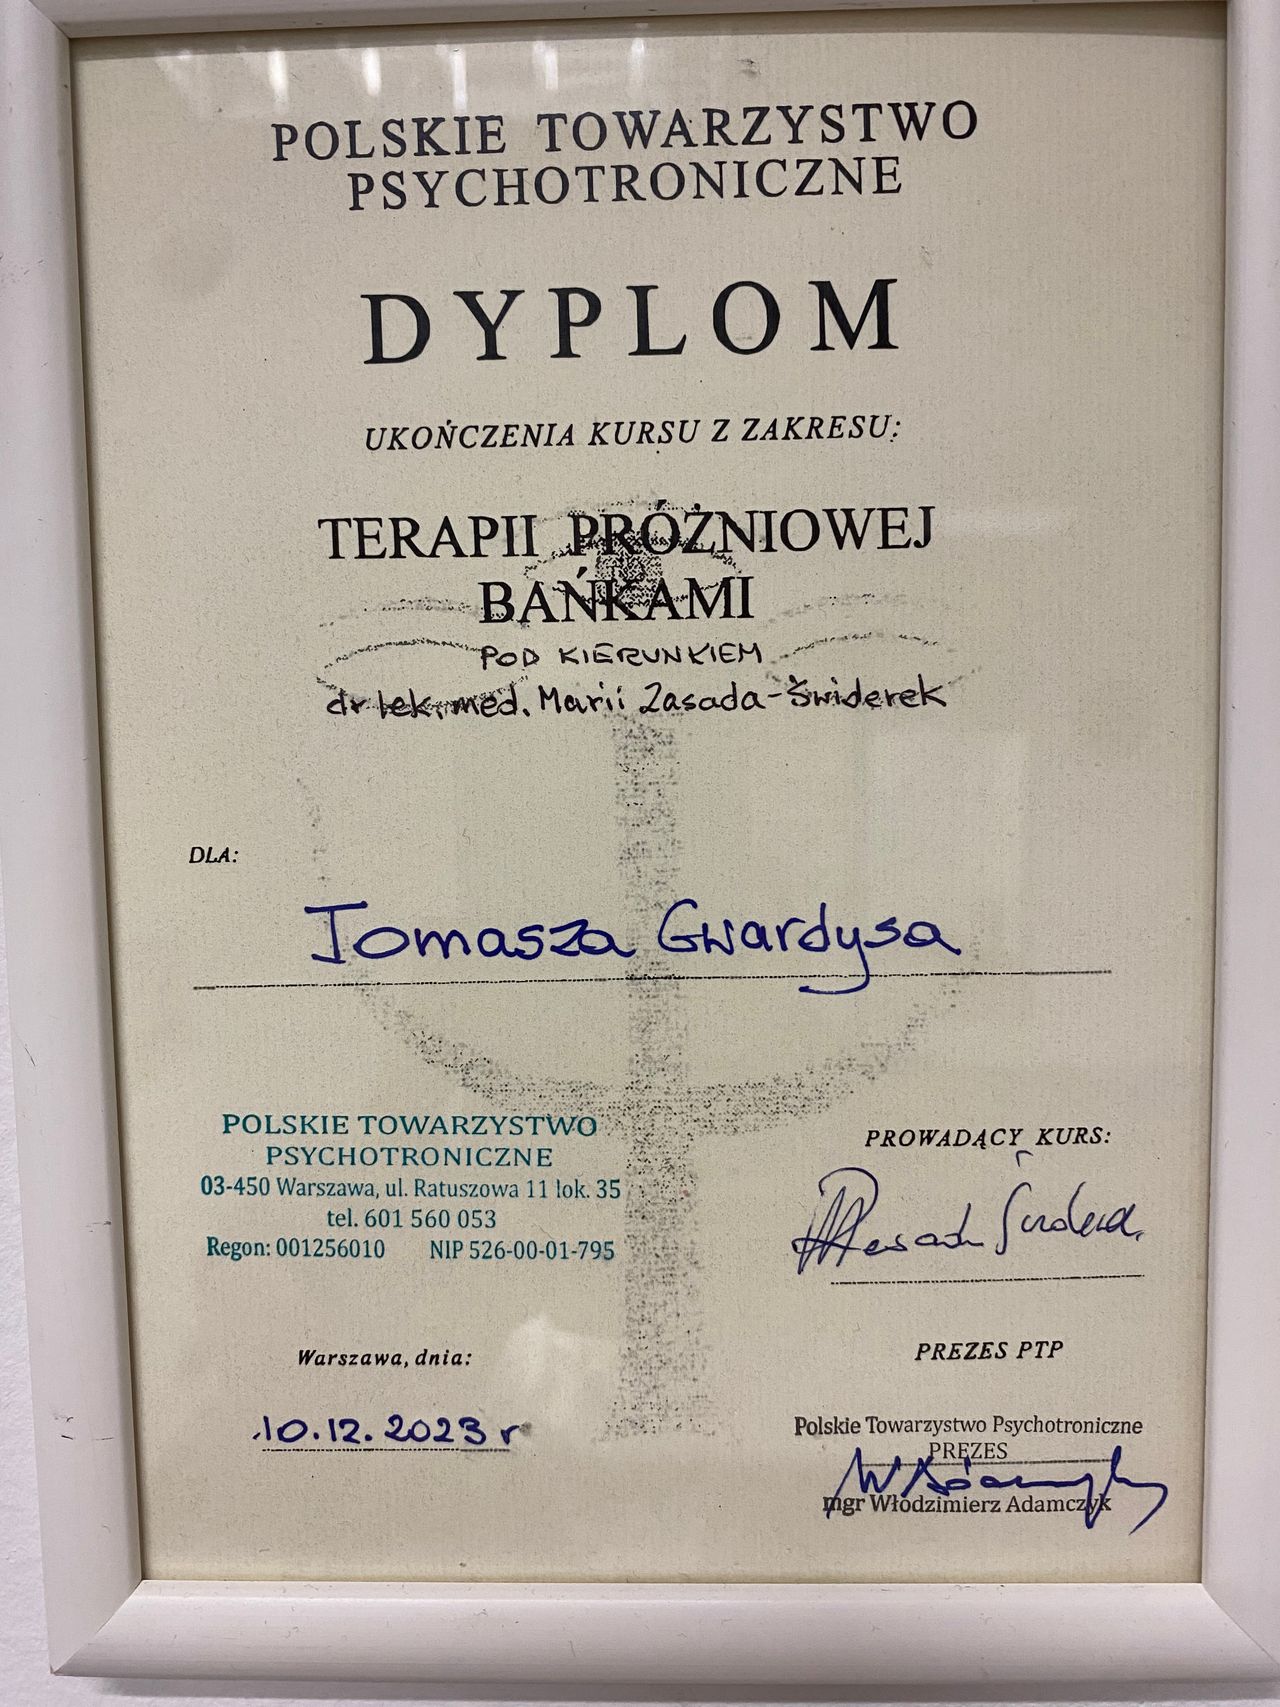 POLSKIE TOWARZYSTWO
PSYCHOTRONICZNE
DYPLOM
UKOŃCZENIA KURSU Z ZAKRESU:
TERAPII PRÓŻNIOWEJ
BAŃKAMI
POD KIERUNKIEM
dr lek. med. Marii Zasada-Świderek
DLA:
Tomasza Gwardysa
POLSKIE TOWARZYSTWO
PSYCHOTRONICZNE
03-450 Warszawa, ul. Ratuszowa 11 lok. 35
tel. 601 560 053
Regon: 001256010 NIP 526-00-01-795
PROWADĄCY KURS:
Warszawa, dnia:
10.12.2023 r
PREZES PTP
Polskie Towarzystwo Psychotroniczne
PREZES
mgr Włodzimierz Adamczyk